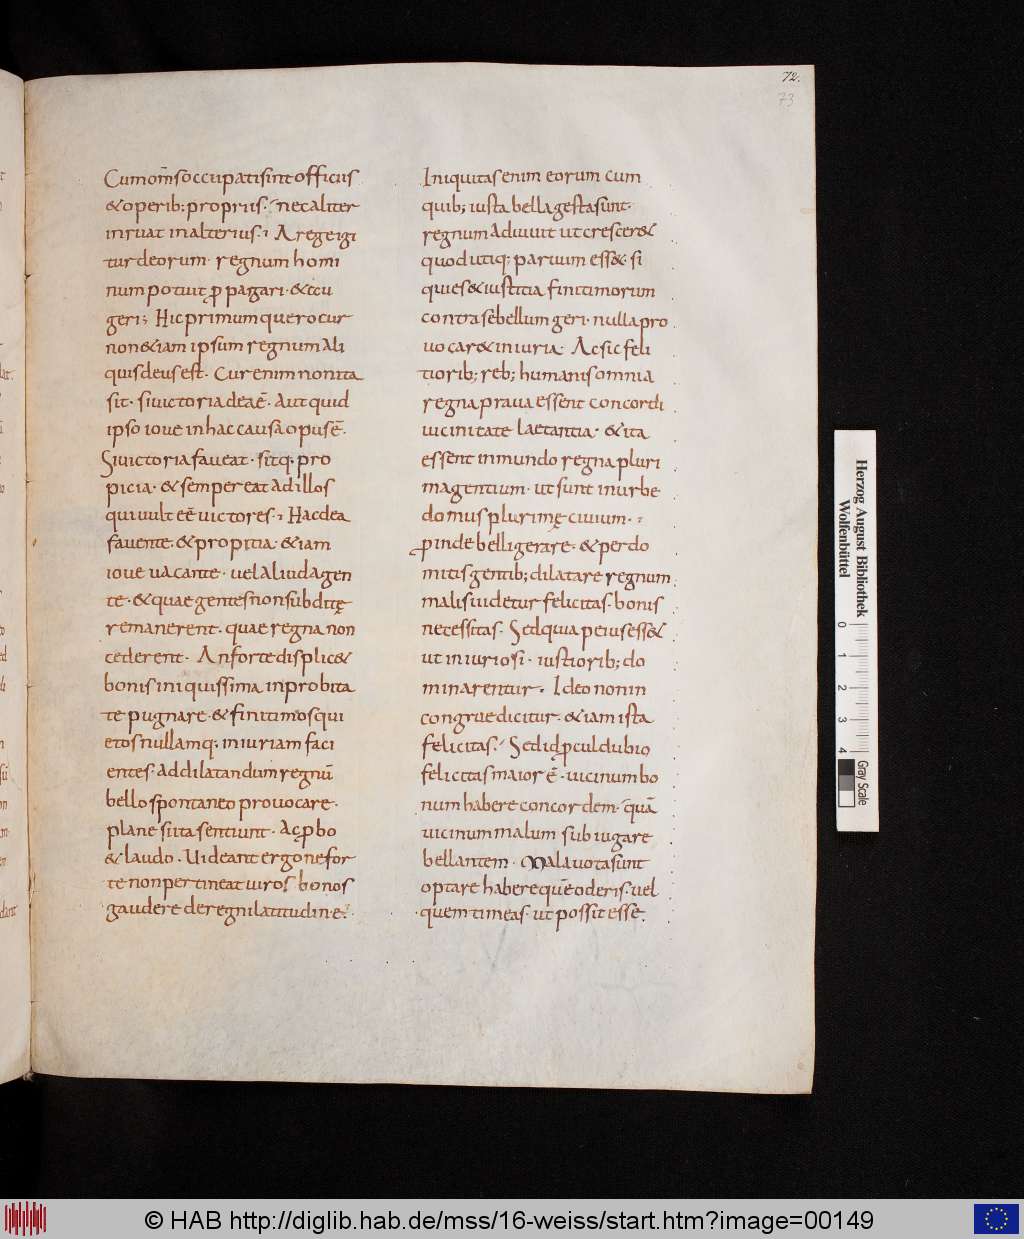 72.
73
Cum om̅s occupati sint officiis
& operib; propriis. nec aliter
inruat in alterius. A rege igi
tur deorum regnum homi
num potuit ꝓpagari. & au
geri; Hic primum quero cur
non & iam ipsum regnum ali
quis deus est. Cur enim non ita
sit. si uictoria dea ē. Aut quid
ipso ioue in hac causa opus ē.
Si uictoria faueat. sitq. pro
picia. & semper eat ad illos
qui uult eē uictores. Hac dea
fauente. & propitia. & iam
ioue uacante. uel aliud agen
te. & quae gentes non subditę
remanerent. quae regna non
cederent. An forte displic&
bonis iniquissima inprobita
te pugnare. & finitimos qui
etos nullamq. iniuriam faci
entes. ad dilatandum regnū
bello spontaneo prouocare.
plane si ita sentiunt. Aꝓbo
& laudo. Uideant ergo ne for
te non pertineat uiros bonos
gaudere de regni latitudine.
Iniquitas enim eorum cum
quib; iusta bella gesta sunt.
regnum adiuuit ut cresceret&
quod utiq; paruum ess&. si
quies & iustitia finitimorum
contra se bellum geri. nulla pro
uocar& iniuria. Ac sic feli
tiorib; reb; humanis omnia
regna praua essent concordi
uicinitate laetantia. & ita
essent in mundo regna pluri
ma gentium. ut sunt in urbe
domus plurimę ciuium.
ꝓinde belligerare. & perdo
mitis gentib; dilatare regnum
malis uidetur felicitas. bonis
necessitas. Sed quia peius ess&
ut iniuriosi. iustiorib; do
minarentur. Ideo non in
congrue dicitur. & iam ista
felicitas. Sed id ꝓcul dubio
felicitas maior ē. uicinum bo
num habere concordem. quā
uicinum malum subiugare
bellantem. Mala uota sunt
optare habere quē oderis. uel
quem timeas. ut possit esse
Herzog August Bibliothek
Wolfenbüttel
0 1 2 3 4
Gray Scale
© HAB http://diglib.hab.de/mss/16-weiss/start.htm?image=00149